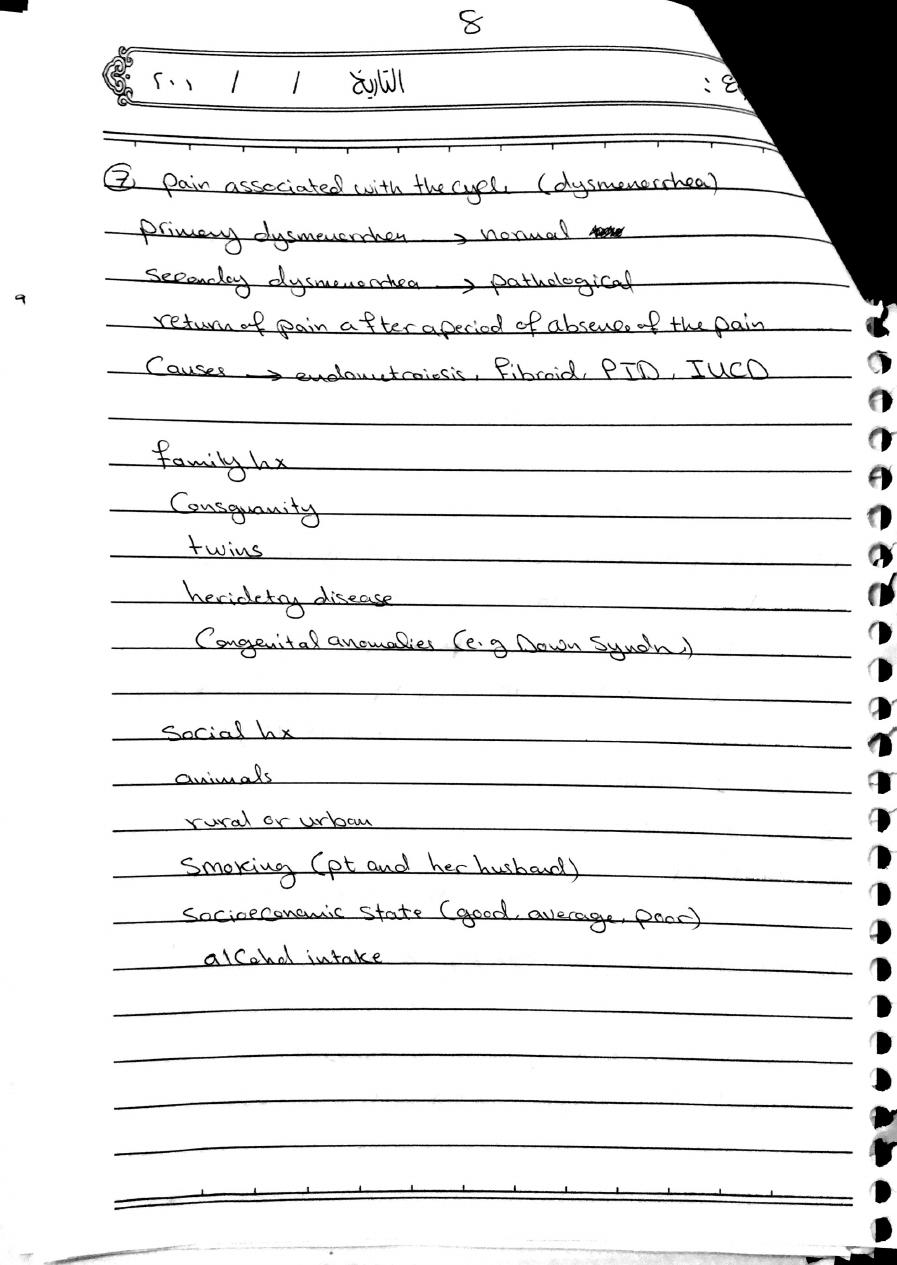 8
التاريخ / / ٢٠٠١
⑦ Pain associated with the cycle (dysmenorrhea)
primary dysmenorrhea → normal
Secondary dysmenorrhea → pathological
return of pain after a period of absence of the pain
Causes → endometroiesis, Fibroid, PID, IUCD
family hx
Consguanity
twins
heridetry disease
Congenital anomalies (e.g Down Syndr.)
Social hx
animals
rural or urban
Smoking (pt and her husband)
Socioeconomic State (good, average, poor)
alcohol intake